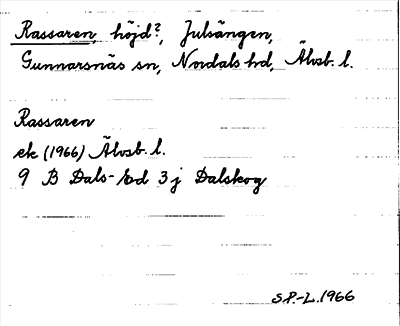 Rassaren, höjd?, Julsängen,
Gunnarsnäs sn, Nordals hd, Älvsb. l.
Rassaren
ek (1966) Älvsb. l.
9 B Dals-Ed 3 j Dalskog
S.P.-L. 1966